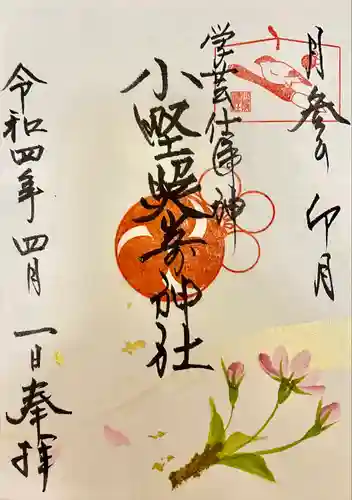 月参り 卯月
学芸仕事神
小野照崎神社
令和四年四月一日奉拝